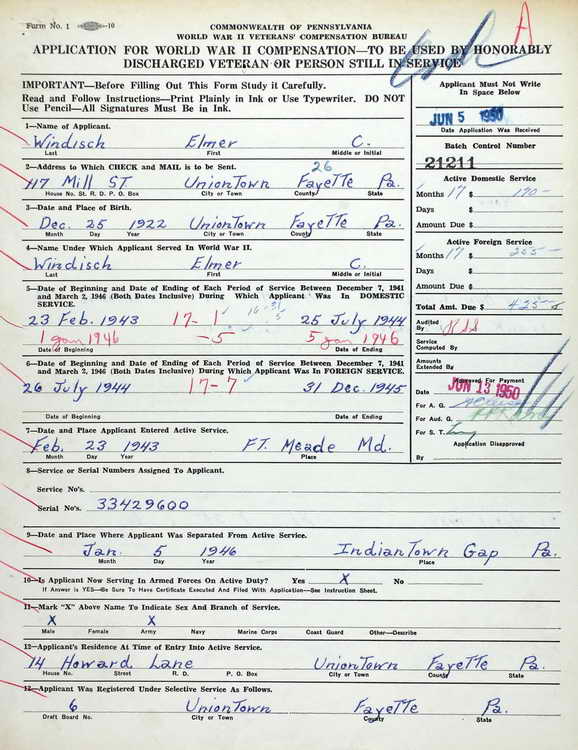 Form No. 1 —10
COMMONWEALTH OF PENNSYLVANIA
WORLD WAR II VETERANS' COMPENSATION BUREAU
A
APPLICATION FOR WORLD WAR II COMPENSATION—TO BE USED BY HONORABLY
DISCHARGED VETERAN OR PERSON STILL IN SERVICE
IMPORTANT—Before Filling Out This Form Study it Carefully.
Read and Follow Instructions—Print Plainly in Ink or Use Typewriter. DO NOT
Use Pencil—All Signatures Must Be in Ink.
Applicant Must Not Write
In Space Below
JUN 5 1950
Date Application Was Received
Batch Control Number
21211
Active Domestic Service
Months 17 $ 170—
Days $
Amount Due $
Active Foreign Service
Months 17 $ 255—
Days $
Amount Due $
Total Amt. Due $ 425—
Audited
By
Service
Computed By
Amounts
Extended By
Approved For Payment
Date JUN 13 1950
For A. G.
For Aud. G.
For S. T.
Application Disapproved
By
1—Name of Applicant.
Windisch Elmer C.
Last First Middle or Initial
2—Address to Which CHECK and MAIL is to be Sent.
26
117 Mill ST UnionTown FayeTTe Pa.
House No. St. R. D. P. O. Box City or Town County State
3—Date and Place of Birth.
Dec. 25 1922 UnionTown FayeTTe Pa.
Month Day Year City or Town County State
4—Name Under Which Applicant Served In World War II.
Windisch Elmer C.
Last First Middle or Initial
5—Date of Beginning and Date of Ending of Each Period of Service Between December 7, 1941
and March 2, 1946 (Both Dates Inclusive) During Which Applicant Was In DOMESTIC
SERVICE.
23 Feb. 1943 17-1 25 July 1944
1 Jan 1946 -5 5 Jan 1946
Date of Beginning Date of Ending
6—Date of Beginning and Date of Ending of Each Period of Service Between December 7, 1941
and March 2, 1946 (Both Dates Inclusive) During Which Applicant Was In FOREIGN SERVICE.
26 July 1944 17-7 31 Dec. 1945
Date of Beginning Date of Ending
7—Date and Place Applicant Entered Active Service.
Feb. 23 1943 FT. Meade Md.
Month Day Year Place
8—Service or Serial Numbers Assigned To Applicant.
Service No's.
Serial No's. 33429600
9—Date and Place Where Applicant Was Separated From Active Service.
Jan. 5 1946 IndianTown Gap Pa.
Month Day Year Place
10—Is Applicant Now Serving In Armed Forces On Active Duty? Yes X No
If Answer is YES—Be Sure To Have Certificate Executed And Filed With Application—See Instruction Sheet.
11—Mark "X" Above Name To Indicate Sex And Branch of Service.
X X
Male Female Army Navy Marine Corps Coast Guard Other—Describe
12—Applicant's Residence At Time of Entry Into Active Service.
14 Howard Lane UnionTown FayeTTe Pa.
House No. Street R. D. P. O. Box City or Town County State
13—Applicant Was Registered Under Selective Service As Follows.
6 UnionTown FayeTTe Pa.
Draft Board No. City or Town County State